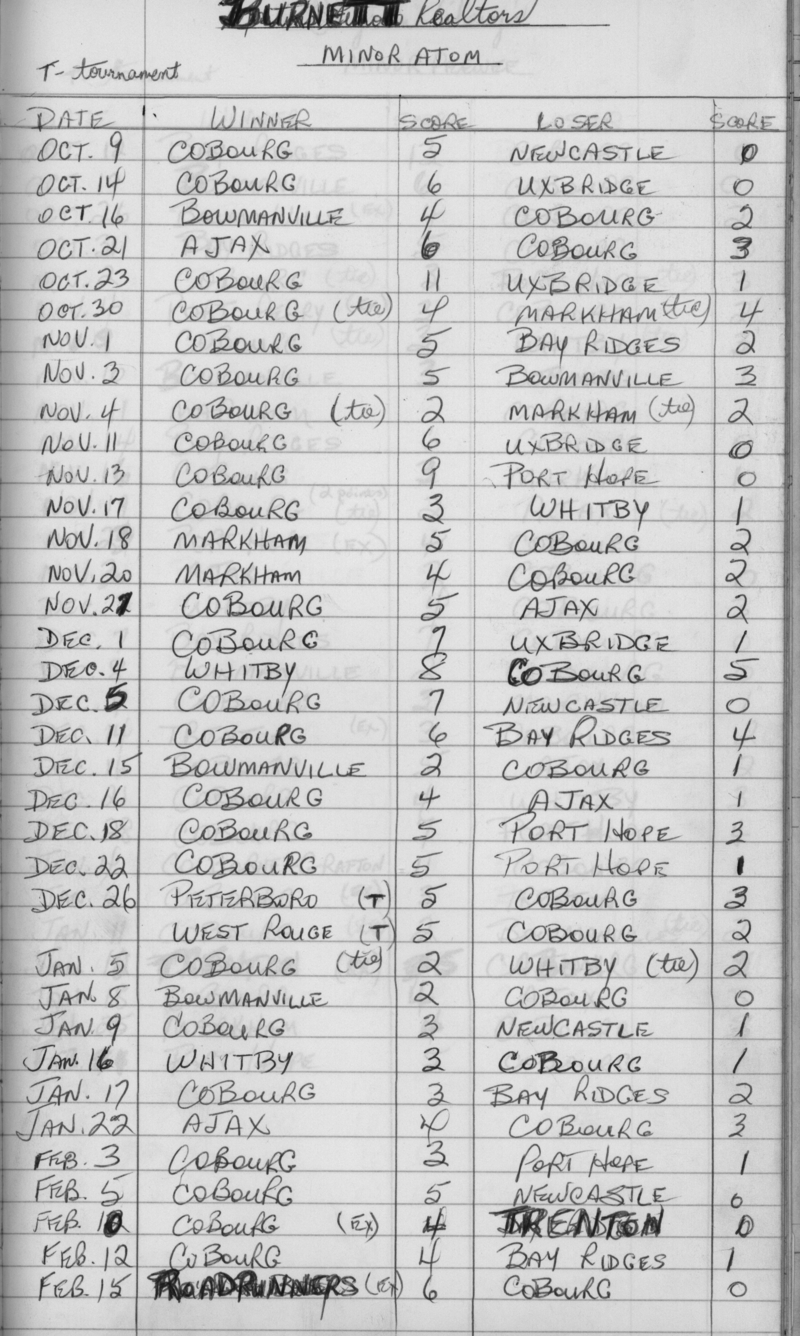 BURNETT Realtors
MINOR ATOM
T- tournament
DATE WINNER SCORE LOSER SCORE
OCT. 9 COBOURG 5 NEWCASTLE 0
OCT. 14 COBOURG 6 UXBRIDGE 0
OCT 16 BOWMANVILLE 4 COBOURG 2
OCT. 21 AJAX 6 COBOURG 3
OCT. 23 COBOURG 11 UXBRIDGE 1
OCT. 30 COBOURG (tie) 4 MARKHAM (tie) 4
NOV. 1 COBOURG 5 BAY RIDGES 2
NOV. 3 COBOURG 5 BOWMANVILLE 3
NOV. 4 COBOURG (tie) 2 MARKHAM (tie) 2
NOV. 11 COBOURG 6 UXBRIDGE 0
NOV. 13 COBOURG 9 PORT HOPE 0
NOV. 17 COBOURG 3 WHITBY 1
NOV. 18 MARKHAM 5 COBOURG 2
NOV. 20 MARKHAM 4 COBOURG 2
NOV. 27 COBOURG 5 AJAX 2
DEC. 1 COBOURG 7 UXBRIDGE 1
DEC. 4 WHITBY 8 COBOURG 5
DEC. 5 COBOURG 7 NEWCASTLE 0
DEC. 11 COBOURG 6 BAY RIDGES 4
DEC. 15 BOWMANVILLE 2 COBOURG 1
DEC. 16 COBOURG 4 AJAX 1
DEC. 18 COBOURG 5 PORT HOPE 3
DEC. 22 COBOURG 5 PORT HOPE 1
DEC. 26 PETERBORO (T) 5 COBOURG 3
WEST ROUGE (T) 5 COBOURG 2
JAN. 5 COBOURG (tie) 2 WHITBY (tie) 2
JAN. 8 BOWMANVILLE 2 COBOURG 0
JAN. 9 COBOURG 3 NEWCASTLE 1
JAN. 16 WHITBY 3 COBOURG 1
JAN. 17 COBOURG 3 BAY RIDGES 2
JAN. 22 AJAX 4 COBOURG 3
FEB. 3 COBOURG 3 PORT HOPE 1
FEB. 5 COBOURG 5 NEWCASTLE 0
FEB. 10 COBOURG (EX) 4 TRENTON 0
FEB. 12 COBOURG 4 BAY RIDGES 1
FEB. 15 ROADRUNNERS (EX) 6 COBOURG 0